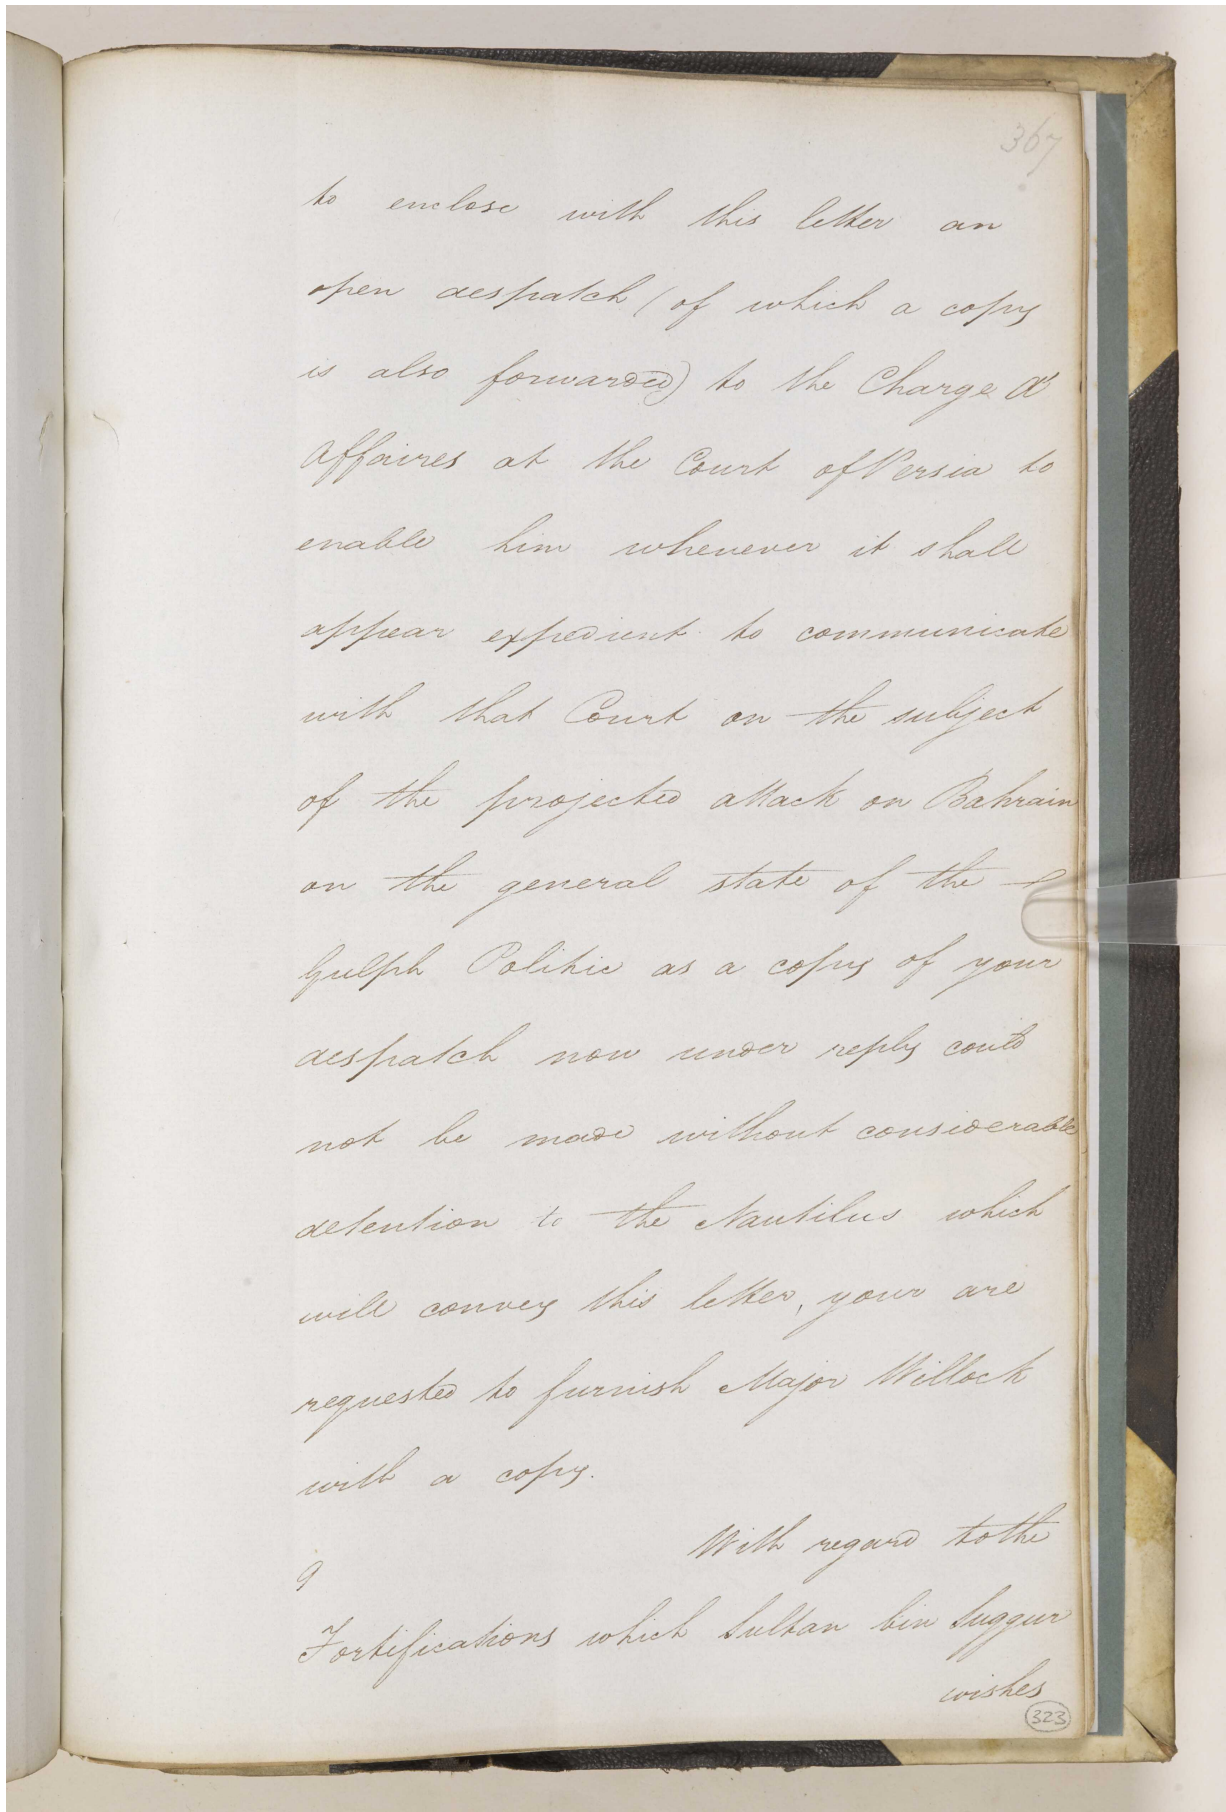 367
to enclose with this letter an
open despatch (of which a copy
is also forwarded) to the Charge d'
Affaires at the Court of Persia to
enable him whenever it shall
appear expedient to communicate
with that Court on the subject
of the projected attack on Bahrain
on the general state of the
Gulph Politic as a copy of your
despatch now under reply could
not be made without considerable
detention to the Nautilus which
will convey this letter, your are
requested to furnish Major Willock
with a copy.
With regard to the
9
Fortifications which Sultan bin Suggur
wishes
323